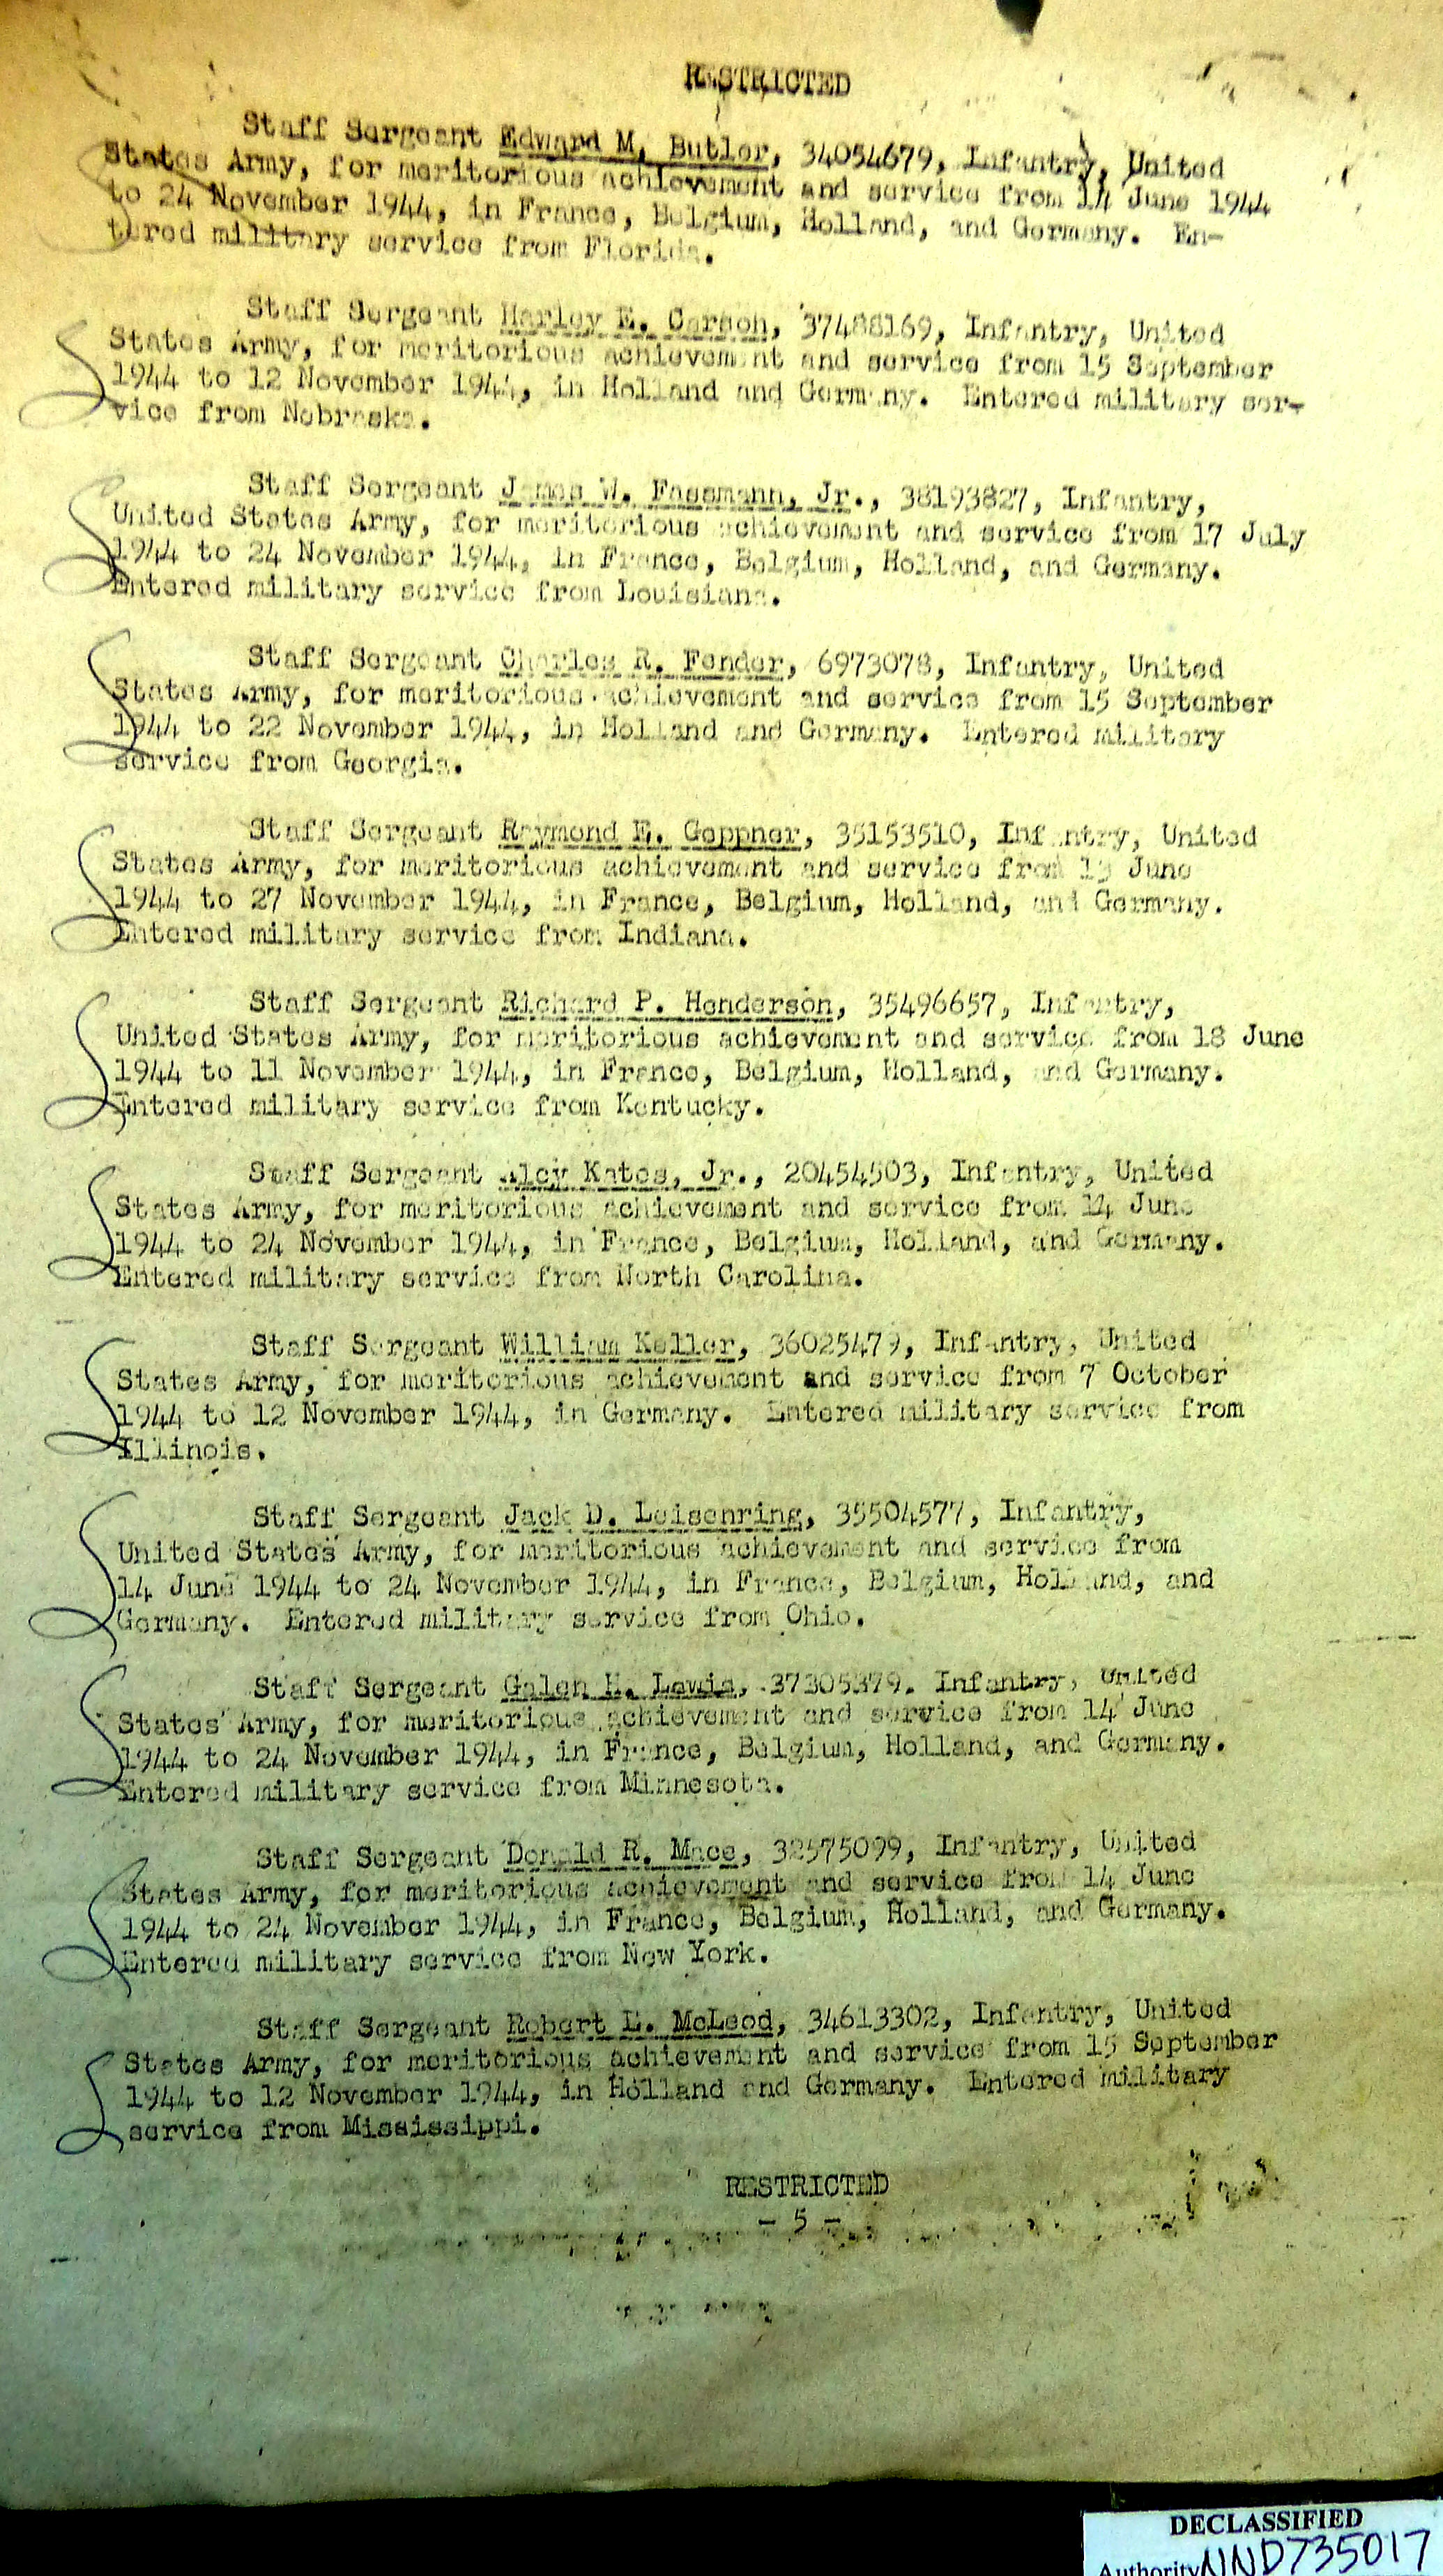 RESTRICTED
Staff Sergeant Edward M. Butler, 34054679, Infantry, United
States Army, for meritorious achievement and service from 14 June 1944
to 24 November 1944, in France, Belgium, Holland, and Germany. En-
tered military service from Florida.
Staff Sergeant Harley E. Carson, 37488169, Infantry, United
States Army, for meritorious achievement and service from 15 September
1944 to 12 November 1944, in Holland and Germany. Entered military ser-
vice from Nebraska.
Staff Sergeant James W. Fassmann, Jr., 38193827, Infantry,
United States Army, for meritorious achievement and service from 17 July
1944 to 24 November 1944, in France, Belgium, Holland, and Germany.
Entered military service from Louisiana.
Staff Sergeant Charles R. Fender, 6973078, Infantry, United
States Army, for meritorious achievement and service from 15 September
1944 to 22 November 1944, in Holland and Germany. Entered military
service from Georgia.
Staff Sergeant Raymond E. Geppner, 35153510, Infantry, United
States Army, for meritorious achievement and service from June
1944 to 27 November 1944, in France, Belgium, Holland, and Germany.
Entered military service from Indiana.
Staff Sergeant Richard P. Henderson, 35496657, Infantry,
United States Army, for meritorious achievement and service from 18 June
1944 to 11 November 1944, in France, Belgium, Holland, and Germany.
Entered military service from Kentucky.
Staff Sergeant Alcy Kates, Jr., 20454503, Infantry, United
States Army, for meritorious achievement and service from 14 June
1944 to 24 November 1944, in France, Belgium, Holland, and Germany.
Entered military service from North Carolina.
Staff Sergeant William Keller, 36025479, Infantry, United
States Army, for meritorious achievement and service from 7 October
1944 to 12 November 1944, in Germany. Entered military service from
Illinois.
Staff Sergeant Jack D. Leisenring, 35504577, Infantry,
United States Army, for meritorious achievement and service from
14 June 1944 to 24 November 1944, in France, Belgium, Holland, and
Germany. Entered military service from Ohio.
Staff Sergeant Galen H. Lewis, 37305379. Infantry, United
States Army, for meritorious achievement and service from 14 June
1944 to 24 November 1944, in France, Belgium, Holland, and Germany.
Entered military service from Minnesota.
Staff Sergeant Donald R. Mace, 32575099, Infantry, United
States Army, for meritorious achievement and service from 14 June
1944 to 24 November 1944, in France, Belgium, Holland, and Germany.
Entered military service from New York.
Staff Sergeant Robert L. McLeod, 34613302, Infantry, United
States Army, for meritorious achievement and service from 15 September
1944 to 12 November 1944, in Holland and Germany. Entered military
service from Mississippi.
RESTRICTED
- 5 -
DECLASSIFIED
Authority NND735017